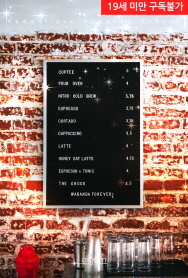 19세 미만 구독불가
COFFEE 3
POUR OVER 4
NITRO COLD BREW 3.75
ESPRESSO 2.75
CORTADO 3.25
CAPPUCCINO 3.5
LATTE 4
HONEY OAT LATTE 4.25
ESPRESSO & TONIC 4
THE CHUCK
WAKANDA FOREVER!